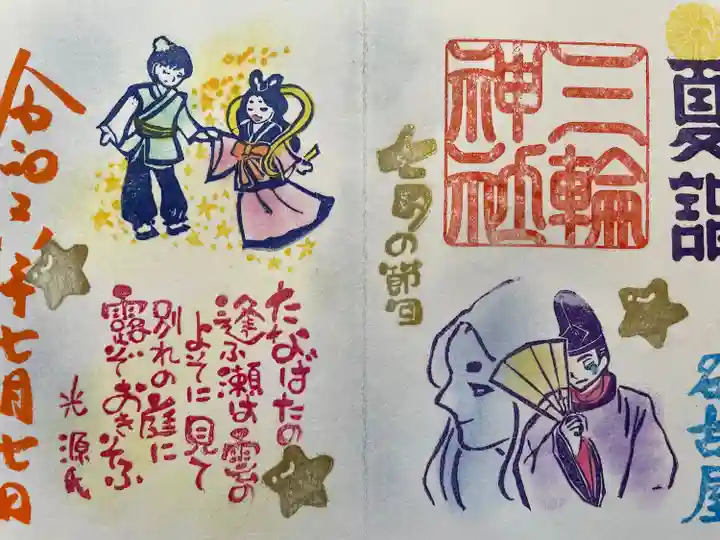 夏詣
名古屋
三輪
神社
七夕の節句
たなばたの
逢ふ瀬は雲の
よそに見て
別れの庭に
露ぞおきそふ
光源氏
七月七日